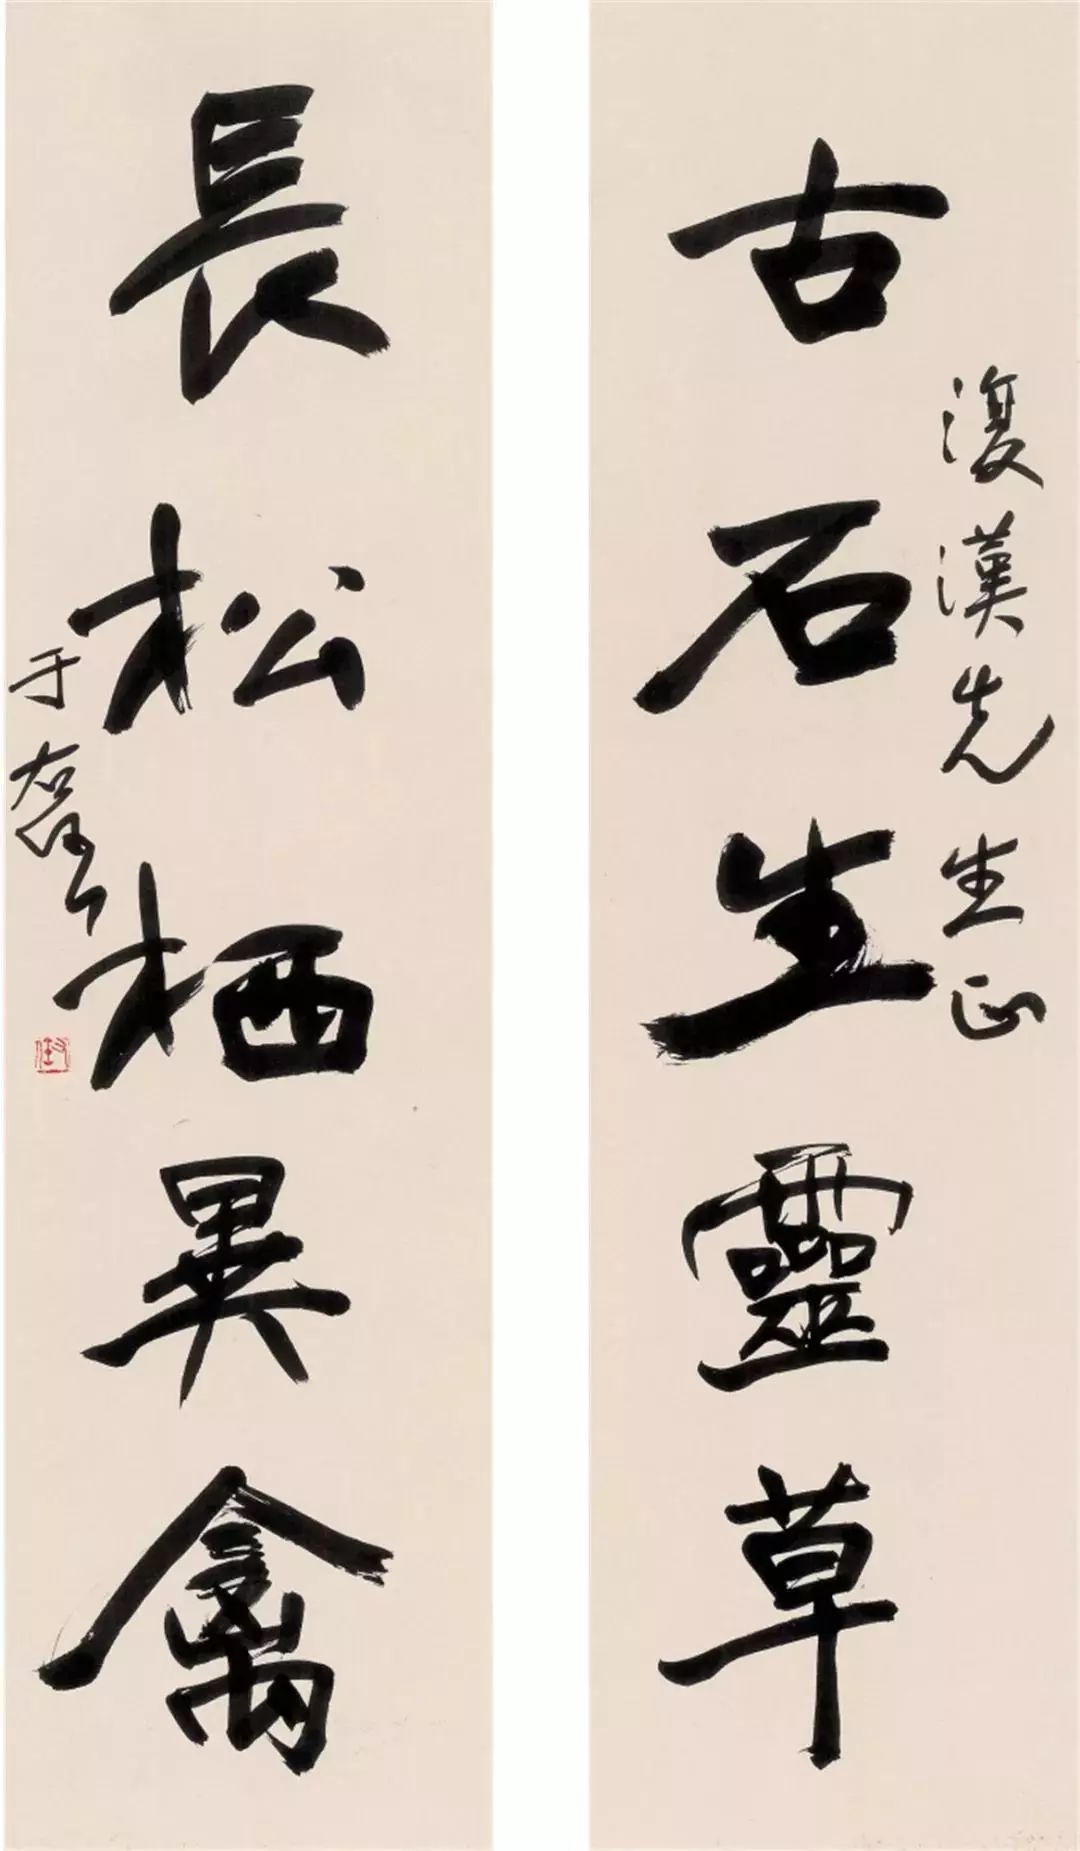 古石生靈草
復漢先生正
長松栖異禽
于右任
右任